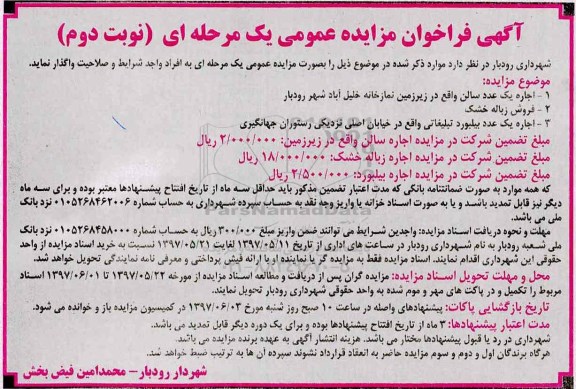 آگهی فراخوان مزایده عمومی یک مرحله ای (نوبت دوم)
شهرداری رودبار در نظر دارد موارد ذکر شده در موضوع ذیل را بصورت مزایده عمومی یک مرحله ای به افراد واجد شرایط و صلاحیت واگذار نماید.
موضوع مزایده:
۱ - اجاره یک عدد سالن واقع در زیرزمین نمازخانه خلیل آباد شهر رودبار
۲ - فروش زباله خشک.
۳ - اجاره یک عدد بیلبورد تبلیغاتی واقع در خیابان اصلی نزدیکی رستوران جهانگیری
مبلغ تضمین شرکت در مزایده اجاره سالن واقع در زیرزمین: ۲/۰۰۰/۰۰۰ ریال
مبلغ تضمین شرکت در مزایده اجاره زباله خشک: ۱۸/۰۰۰/۰۰۰ ریال
مبلغ تضمین شرکت در مزایده اجاره بیلبورد: ۲/۵۰۰/۰۰۰ ریال
که همه موارد به صورت ضمانتنامه بانکی که مدت اعتبار تضمین مذکور باید حداقل سه ماه از تاریخ افتتاح پیشنهادها معتبر بوده و برای سه ماه
دیگر نیز قابل تمدید باشد و یا به صورت اسناد خزانه یا واریز وجه نقد به حساب سپرده شهرداری به حساب شماره ۰۱۰۵۲۶۸۴۶۲۰۰۶ نزد بانک
ملی می باشد.
مهلت و نحوه دریافت اسناد مزایده: واجدین شرایط می توانند ضمن واریز مبلغ ۳۰۰/۰۰۰ ریال به حساب شماره ۰۱۰۵۲۶۸۴۵۸۰۰۰ نزد بانک
ملی شعبه رودبار به نام شهرداری رودبار در ساعت های اداری از تاریخ ۱۳۹۷/۰۵/۱۱ لغایت ۱۳۹۷/۰۵/۲۱ نسبت به خرید اسناد مزایده از واحد
حقوقی این شهرداری اقدام نمایند. اسناد مزایده فقط به مزایده گر یا نماینده او با ارائه فیش پرداختی و معرفی نامه نمایندگی تحویل خواهد شد.
محل و مهلت تحویل اسناد مزایده: مزایده گران پس از دریافت و مطالعه اسناد مزایده از مورخه ۱۳۹۷/۰۵/۲۲ تا ۱۳۹۷/۰۶/۰۱ اسناد
مربوط را تکمیل و در پاکت های مهر و موم شده به واحد حقوقی شهرداری رودبار تحویل نمایند.
تاریخ بازگشایی پاکات: پیشنهادهای واصله در ساعت ۱۰ صبح روز شنبه مورخ ۱۳۹۷/۰۶/۰۳ در کمیسیون مزایده باز و خوانده می شود.
مدت اعتبار پیشنهادها: ۳ ماه از تاریخ افتتاح پیشنهادها بوده و برای یک دوره دیگر قابل تمدید می باشد.
شهرداری در رد یا قبول پیشنهادها مختار می باشد. هزینه انتشار آگهی به عهده برنده مزایده می باشد.
هرگاه برندگان اول و دوم و سوم مزایده حاضر به انعقاد قرارداد نشوند سپرده آن ها به ترتیب ضبط خواهد شد.
شهردار رودبار - محمدامین فیض بخش
ParsNamadData